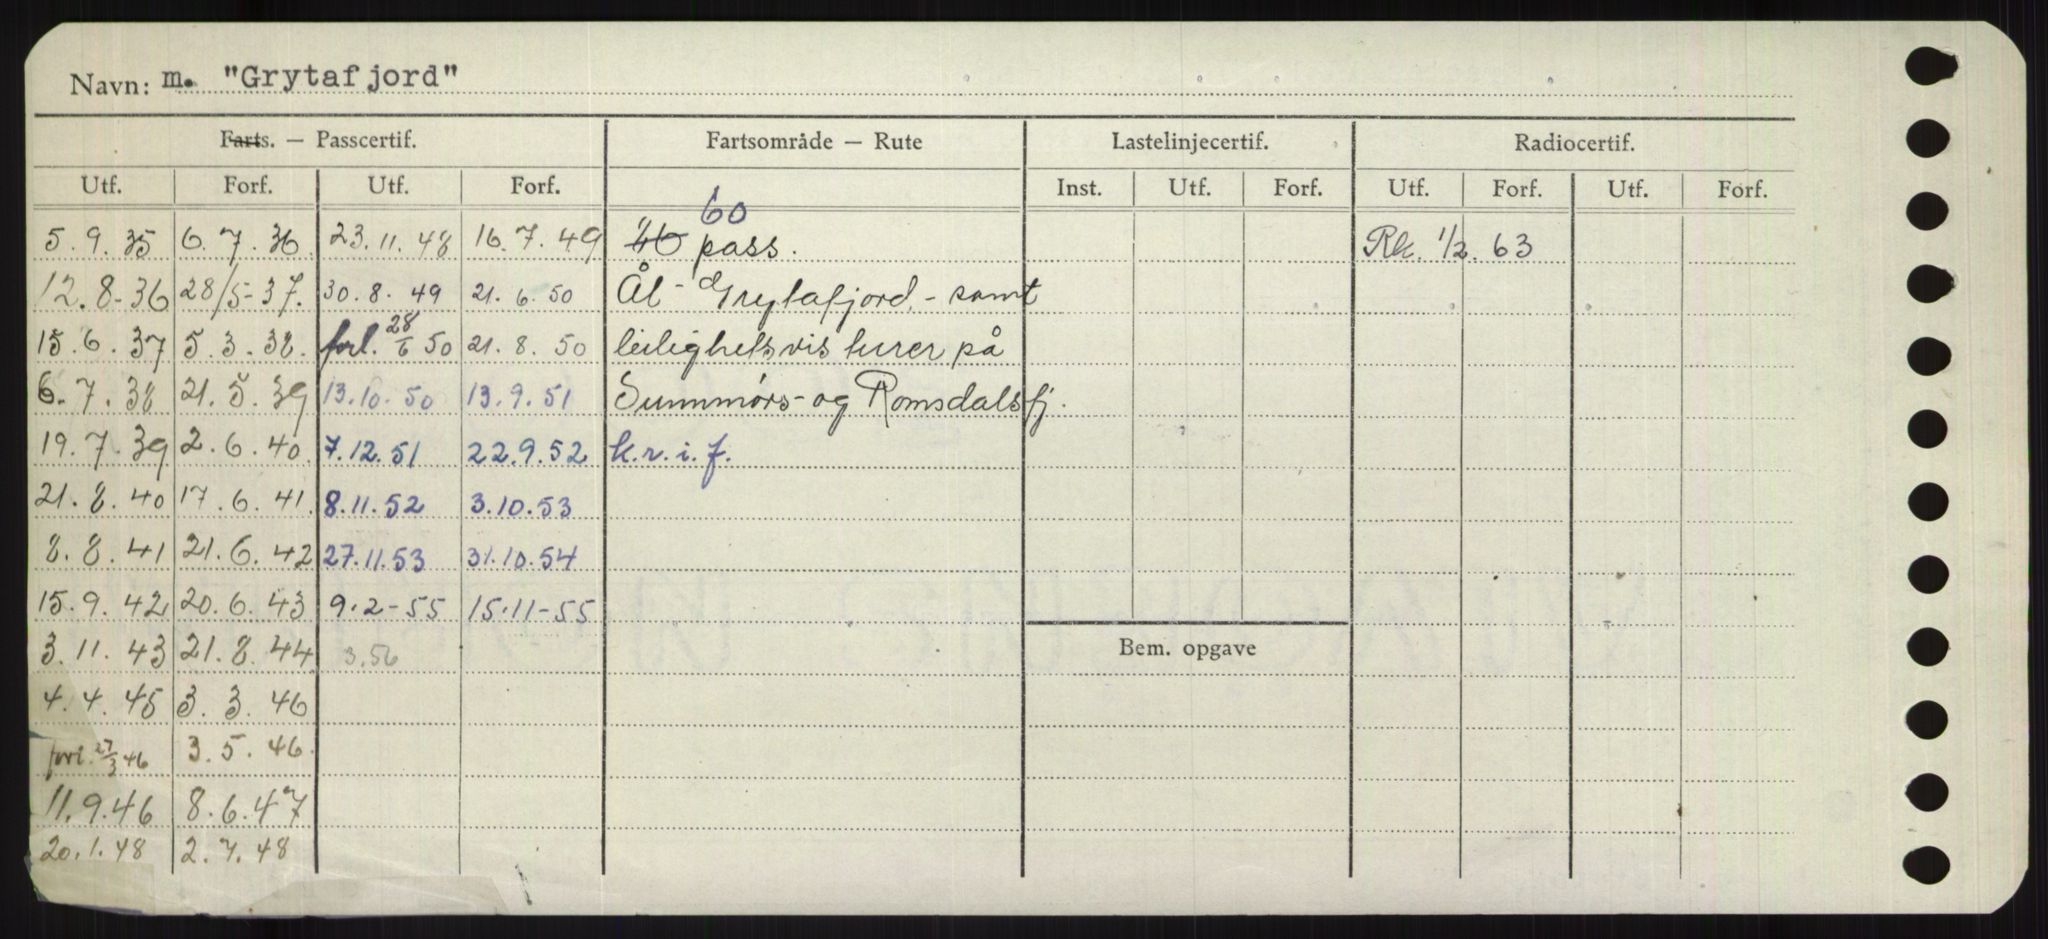 Navn: m. "Grytafjord"
Farts. — Passcertif. Fartsområde — Rute Lastelinjecertif. Radiocertif.
Utf. Forf. Utf. Forf. Inst. Utf. Forf. Utf. Forf. Utf. Forf.
60
5.9.35 6.7.36 23.11.48 16.7.49 pass. Rk. 1/2.63
12.8-36 28/5-37. 30.8.49 21.6.50 Ål - Grytafjord, - samt
15.6.37 5.3.38. forl. 28/6 50 21.8.50 leilighetsvis turer på
6.7.38 21.5.39 13.10.50 13.9.51 Sunnmørs- og Romsdalsfj.
19.7.39 2.6.40 7.12.51 22.9.52 k.r.i.f.
21.8.40 17.6.41. 8.11.52 3.10.53
8.8.41 21.6.42 27.11.53 31.10.54
15.9.42 20.6.43 9.2-55 15.11-55
3.11.43 21.8.44 3.56 Bem. opgave
4.4.45 3.3.46
forl. 27/3 46 3.5.46.
11.9.46 8.6.47
20.1.48 2.7.48